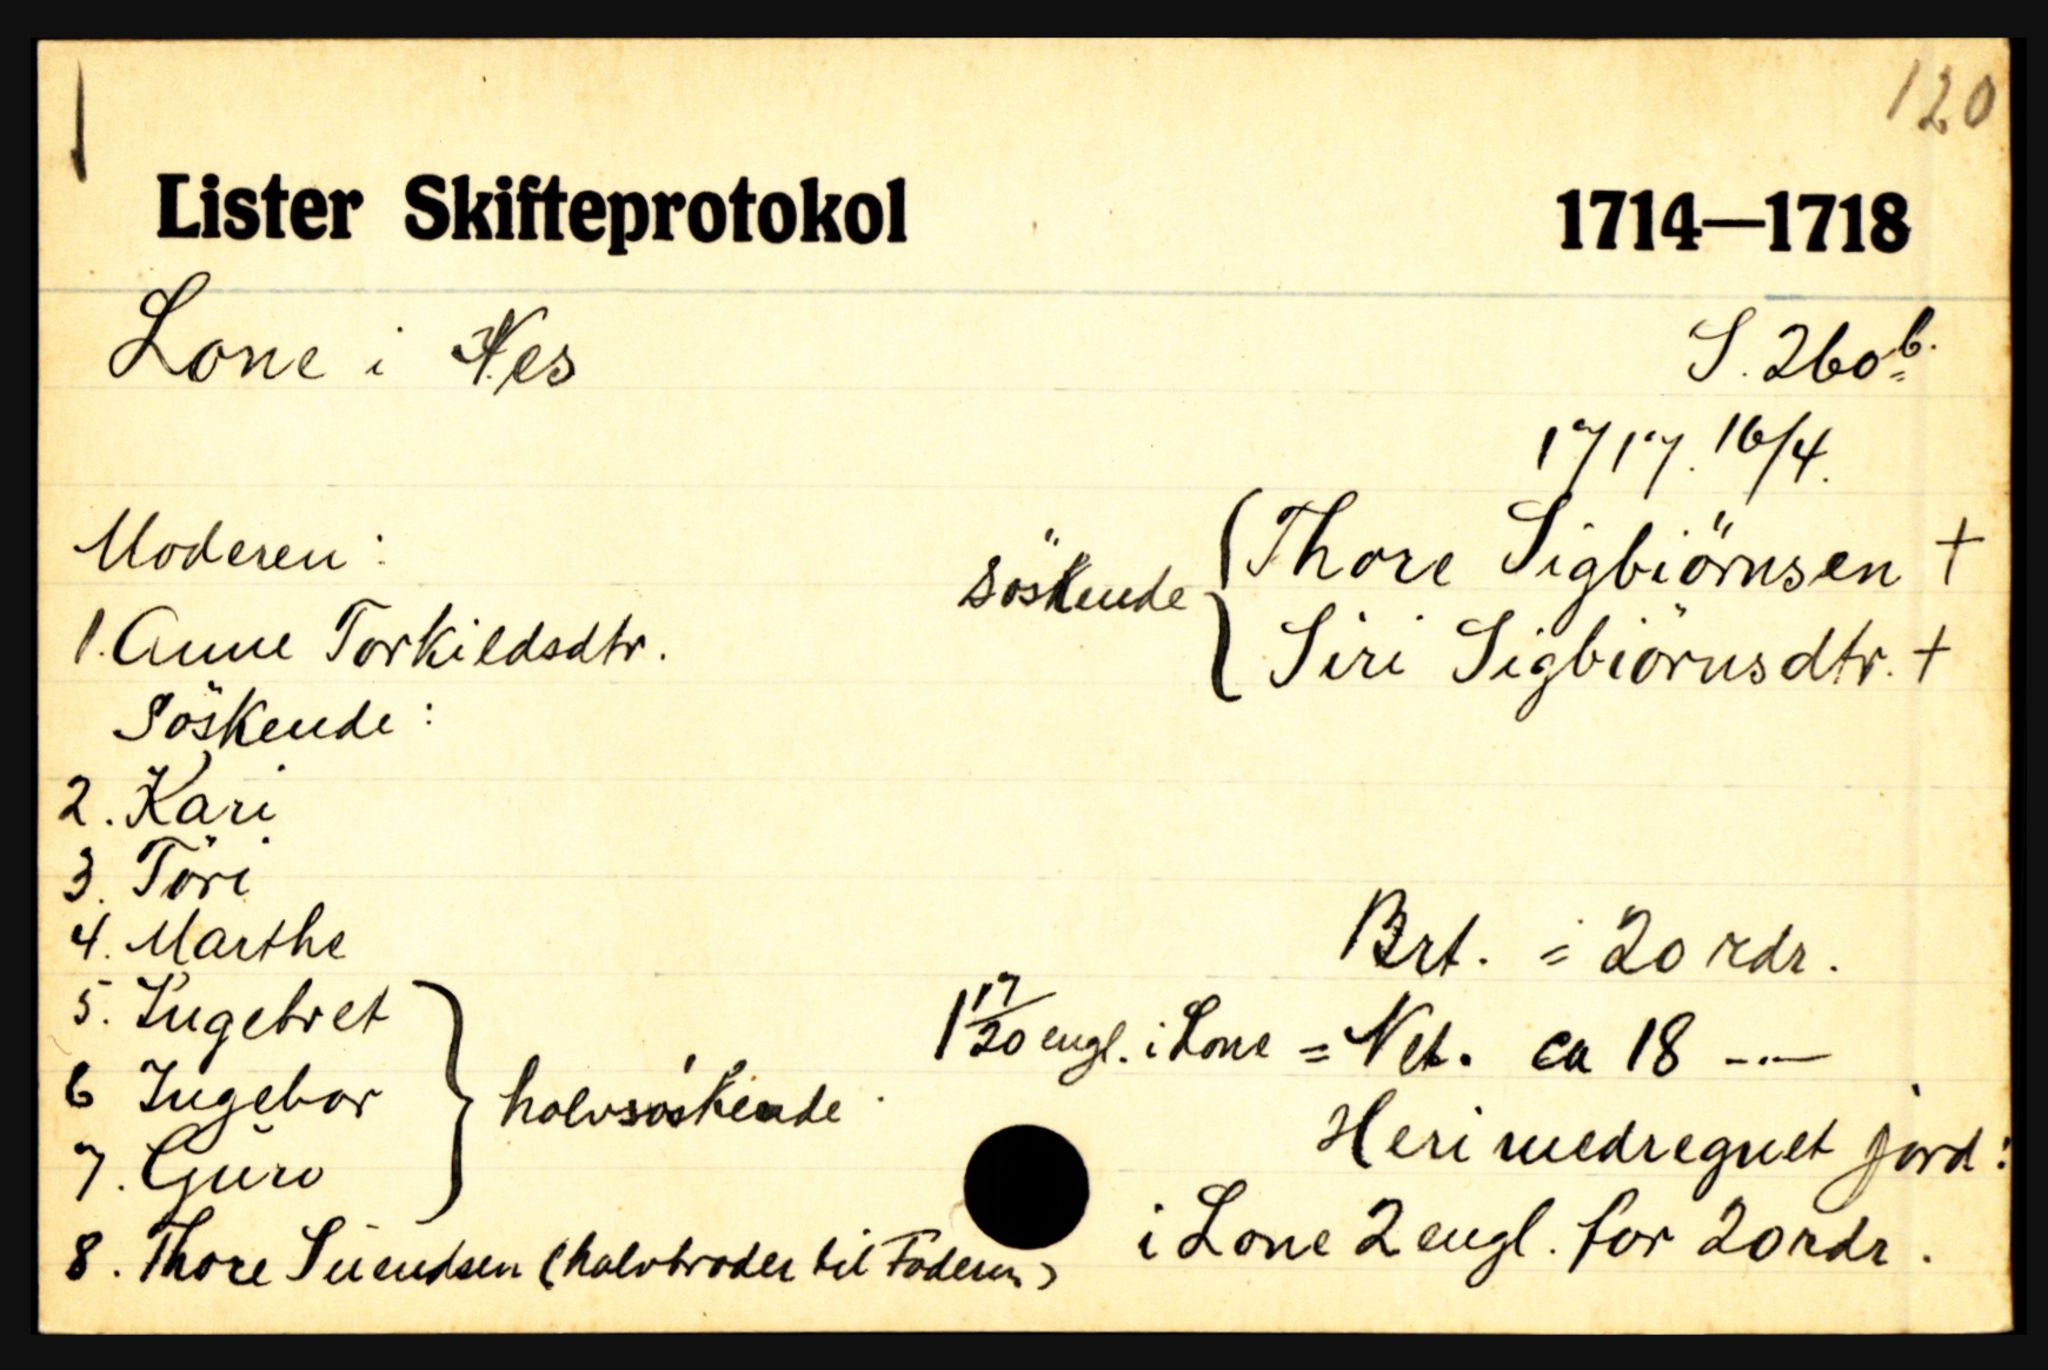 120
Lister Skifteprotokol 1714—1718
Lone i Nes
S. 260 b.
1717. 16/4.
Moderen:
söskende { Thore Sigbiörnsen +
Siri Sigbiörnsdtr. +
1. Anne Torkildsdtr.
Söskende:
2. Kari
3. Töri
4. Marthe
Brt. = 20 rdr.
5. Ingebret
1 17/20 engl. i Lone = Net. ca 18 -.-
6 Ingebor } halvsöskende
Heri medregnet jord:
7. Guro
i Lone 2 engl. for 20 rdr.
8. Thore Suendsen (halvbroder til Faderen)